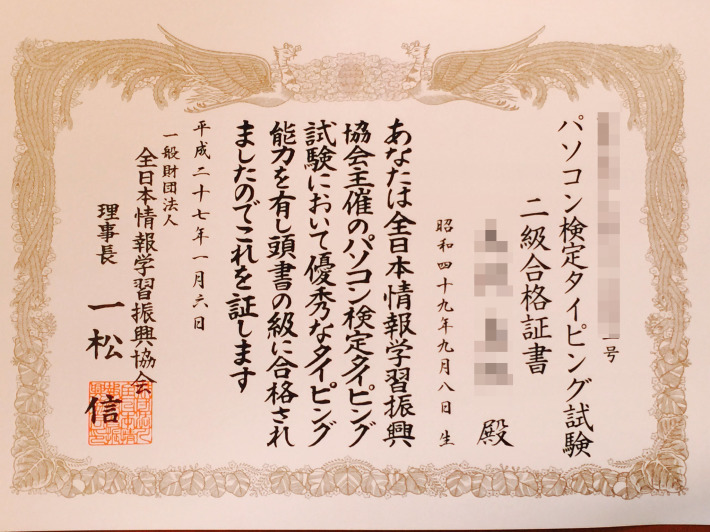 号
パソコン検定タイピング試験
二級合格証書
殿
昭和四十九年九月八日 生
あなたは全日本情報学習振興
協会主催のパソコン検定タイピング
試験において優秀なタイピング
能力を有し頭書の級に合格され
ましたのでこれを証します
平成二十七年一月六日
一般財団法人
全日本情報学習振興協会
理事長 一松 信